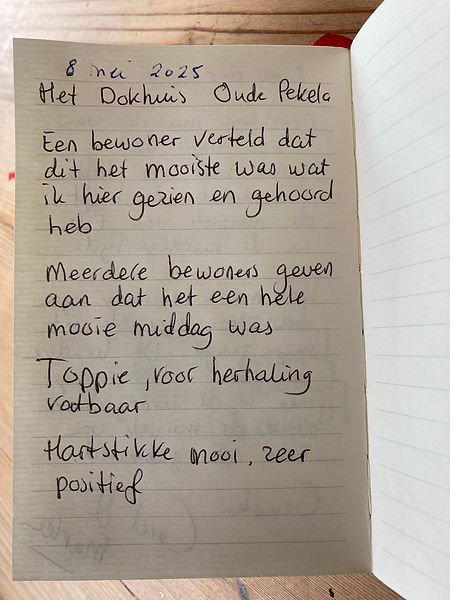 8 mei 2025
Het Dokhuis Oude Pekela
Een bewoner verteld dat
dit het mooiste was wat
ik hier gezien en gehoord
heb
Meerdere bewoners geven
aan dat het een hele
mooie middag was
Toppie, voor herhaling
vatbaar
Hartstikke mooi, zeer
positief